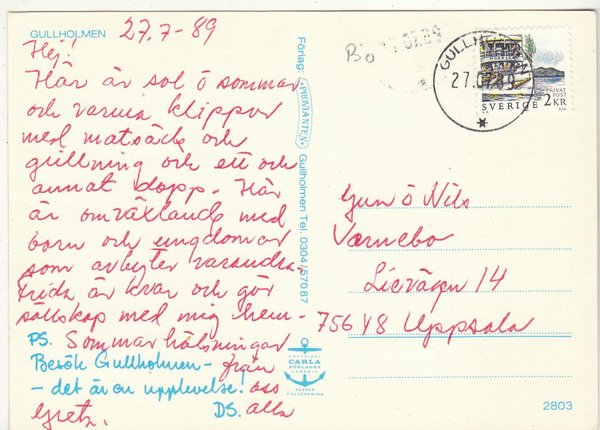 GULLHOLMEN
27.7-89
Hej!
Här är sol ö sommar
och varma klippor
med matsäck och
grillning och ett och
annat dopp. Här
är omväxlande med
barn och ungdomar
som avbyter varandra.
Frida är kvar och gör
sällskap med mig hem-
Sommarhälsningar
från
oss
alla
Greta.
PS.
Besök Gullholmen-
- det är en upplevelse!
DS.
Förlag: PROVIANTEN Gullholmen Tel. 0304/570 87
COPYRIGHT
CARLA
FÖRLAGET
LYSEKIL
SVENSK
TILLVERKNING
Bo
07.89
GULLHOLMEN
27.07.89
SVERIGE 2 KR
PRIVAT
POST
Gun ö Nils
Värnebo
Lievägen 14
756 48 Uppsala
2803